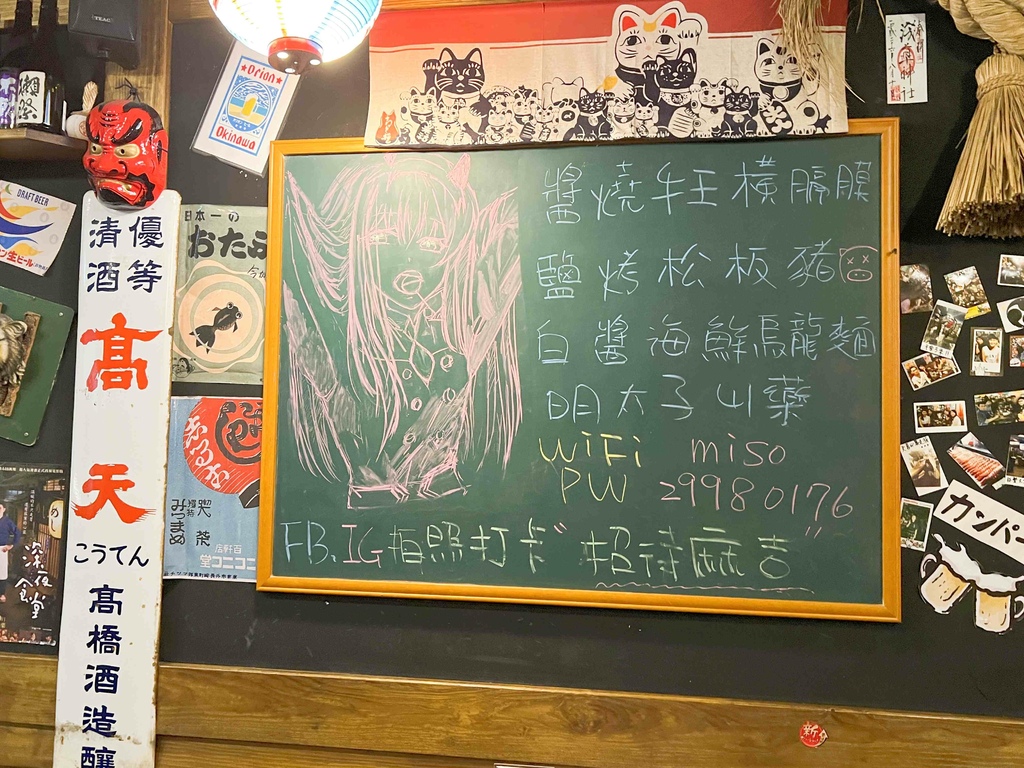 TEAC
獺祭
Orion
Okinawa
DRAFT BEER
生ビール
優等
清酒
髙天
こうてん
髙橋酒造
醸
日本一の
おたふ
みつまめ
喫茶
深夜食堂
醬燒牛王橫膈膜
鹽烤松板豬
白醬海鮮烏龍麵
明太子山藥
WiFi miso
PW 29980176
FB.IG拍照打卡"招待麻吉"
カンパー